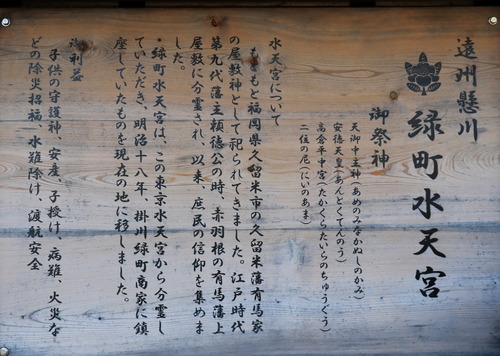 遠州懸川
緑町水天宮
御祭神
天御中主神（あめのみなかぬしのかみ）
安徳天皇（あんとくてんのう）
高倉平中宮（たかくらたいらのちゅうぐう）
二位の尼（にいのあま）
水天宮について
もともと福岡県久留米市の久留米藩有馬家
の屋敷神として祀られてきました。江戸時代
第九代藩主頼徳公の時、赤羽根の有馬藩上
屋敷に分霊され、以来、庶民の信仰を集めま
した。
緑町水天宮は、この東京水天宮から分霊し
ていただき、明治十八年、掛川緑町商家に鎮
座していたものを現在の地に移しました。
御利益
子供の守護神、安産、子授け、病難、火災な
どの除災招福、水難除け、渡航安全